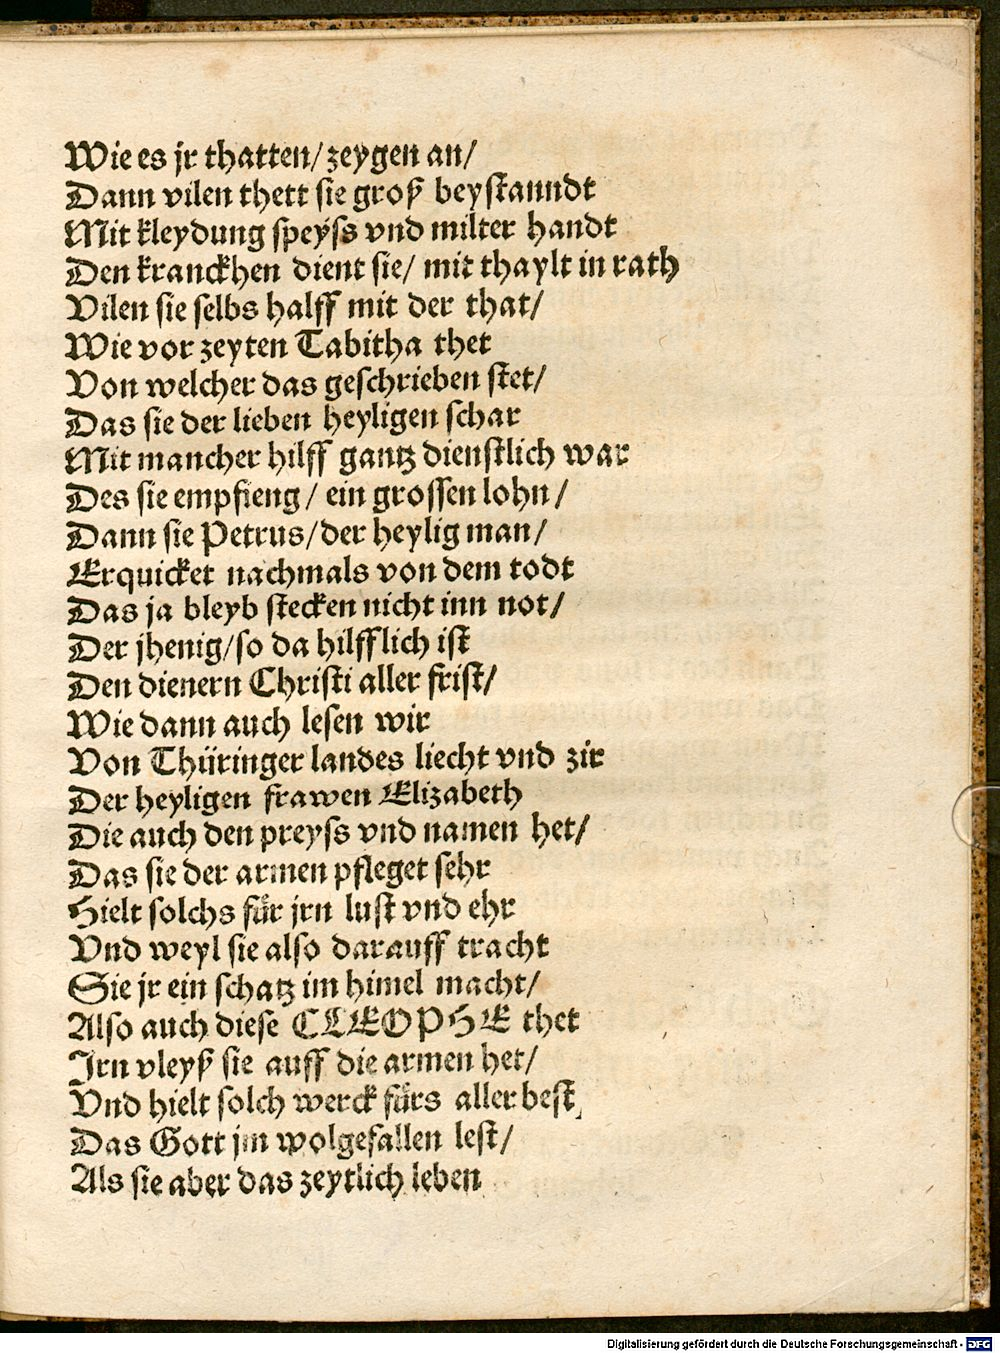 Wie es jr thatten/ zeygen an/
Dann vilen thett sie groß beystanndt
Mit kleydung speyss vnd milter handt
Den kranckhen dient sie/ mit thaylt in rath
Vilen sie selbs halff mit der that/
Wie vor zeyten Tabitha thet
Von welcher das geschrieben stet/
Das sie der lieben heyligen schar
Mit mancher hilff gantz dienstlich war
Des sie empfieng / ein grossen lohn/
Dann sie Petrus/ der heylig man/
Erquicket nachmals von dem todt
Das ja bleyb stecken nicht inn not/
Der jhenig/ so da hilfflich ist
Den dienern Christi aller frist/
Wie dann auch lesen wir
Von Thüringer landes liecht vnd zir
Der heyligen frawen Elizabeth
Die auch den preyss vnd namen het/
Das sie der armen pfleget sehr
Hielt solchs für jrn lust vnd ehr
Vnd weyl sie also darauff tracht
Sie jr ein schatz im himel macht/
Also auch diese CLEOPHE thet
Jrn vleyß sie auff die armen het/
Vnd hielt solch werck fürs aller best,
Das Gott jm wolgefallen lest/
Als sie aber das zeytlich leben
Digitalisierung gefördert durch die Deutsche Forschungsgemeinschaft - DFG